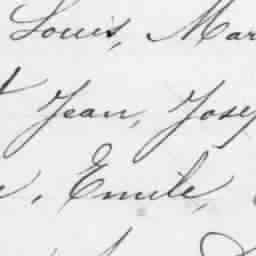 Louis, Mar
Jean, Jose
Emile,